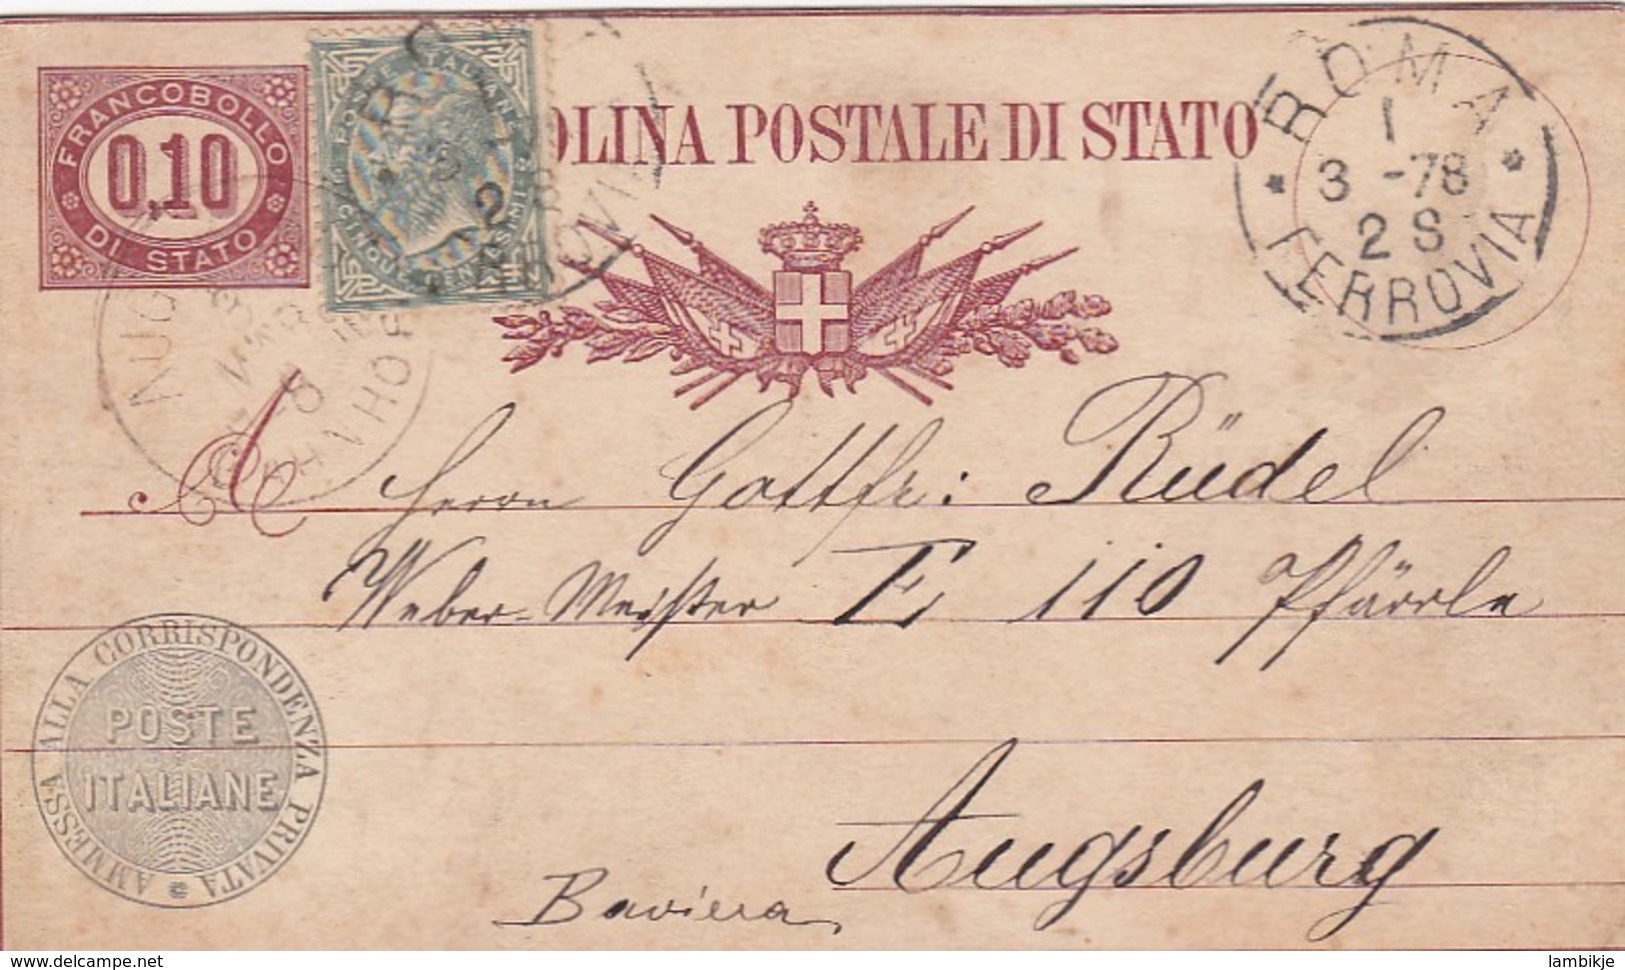 FRANCOBOLLO
0,10
DI STATO
POSTE ITALIANE
OLINA POSTALE DI STATO
ROMA
1
3 -78
2 S
FERROVIA
Herrn Gottfr: Rüdel
Weber-Meister E 110 Pfärrle
Augsburg
Baviera
AMMESSA ALLA CORRISPONDENZA PRIVATA
POSTE
ITALIANE
https://www.delcampe.net
lambikje